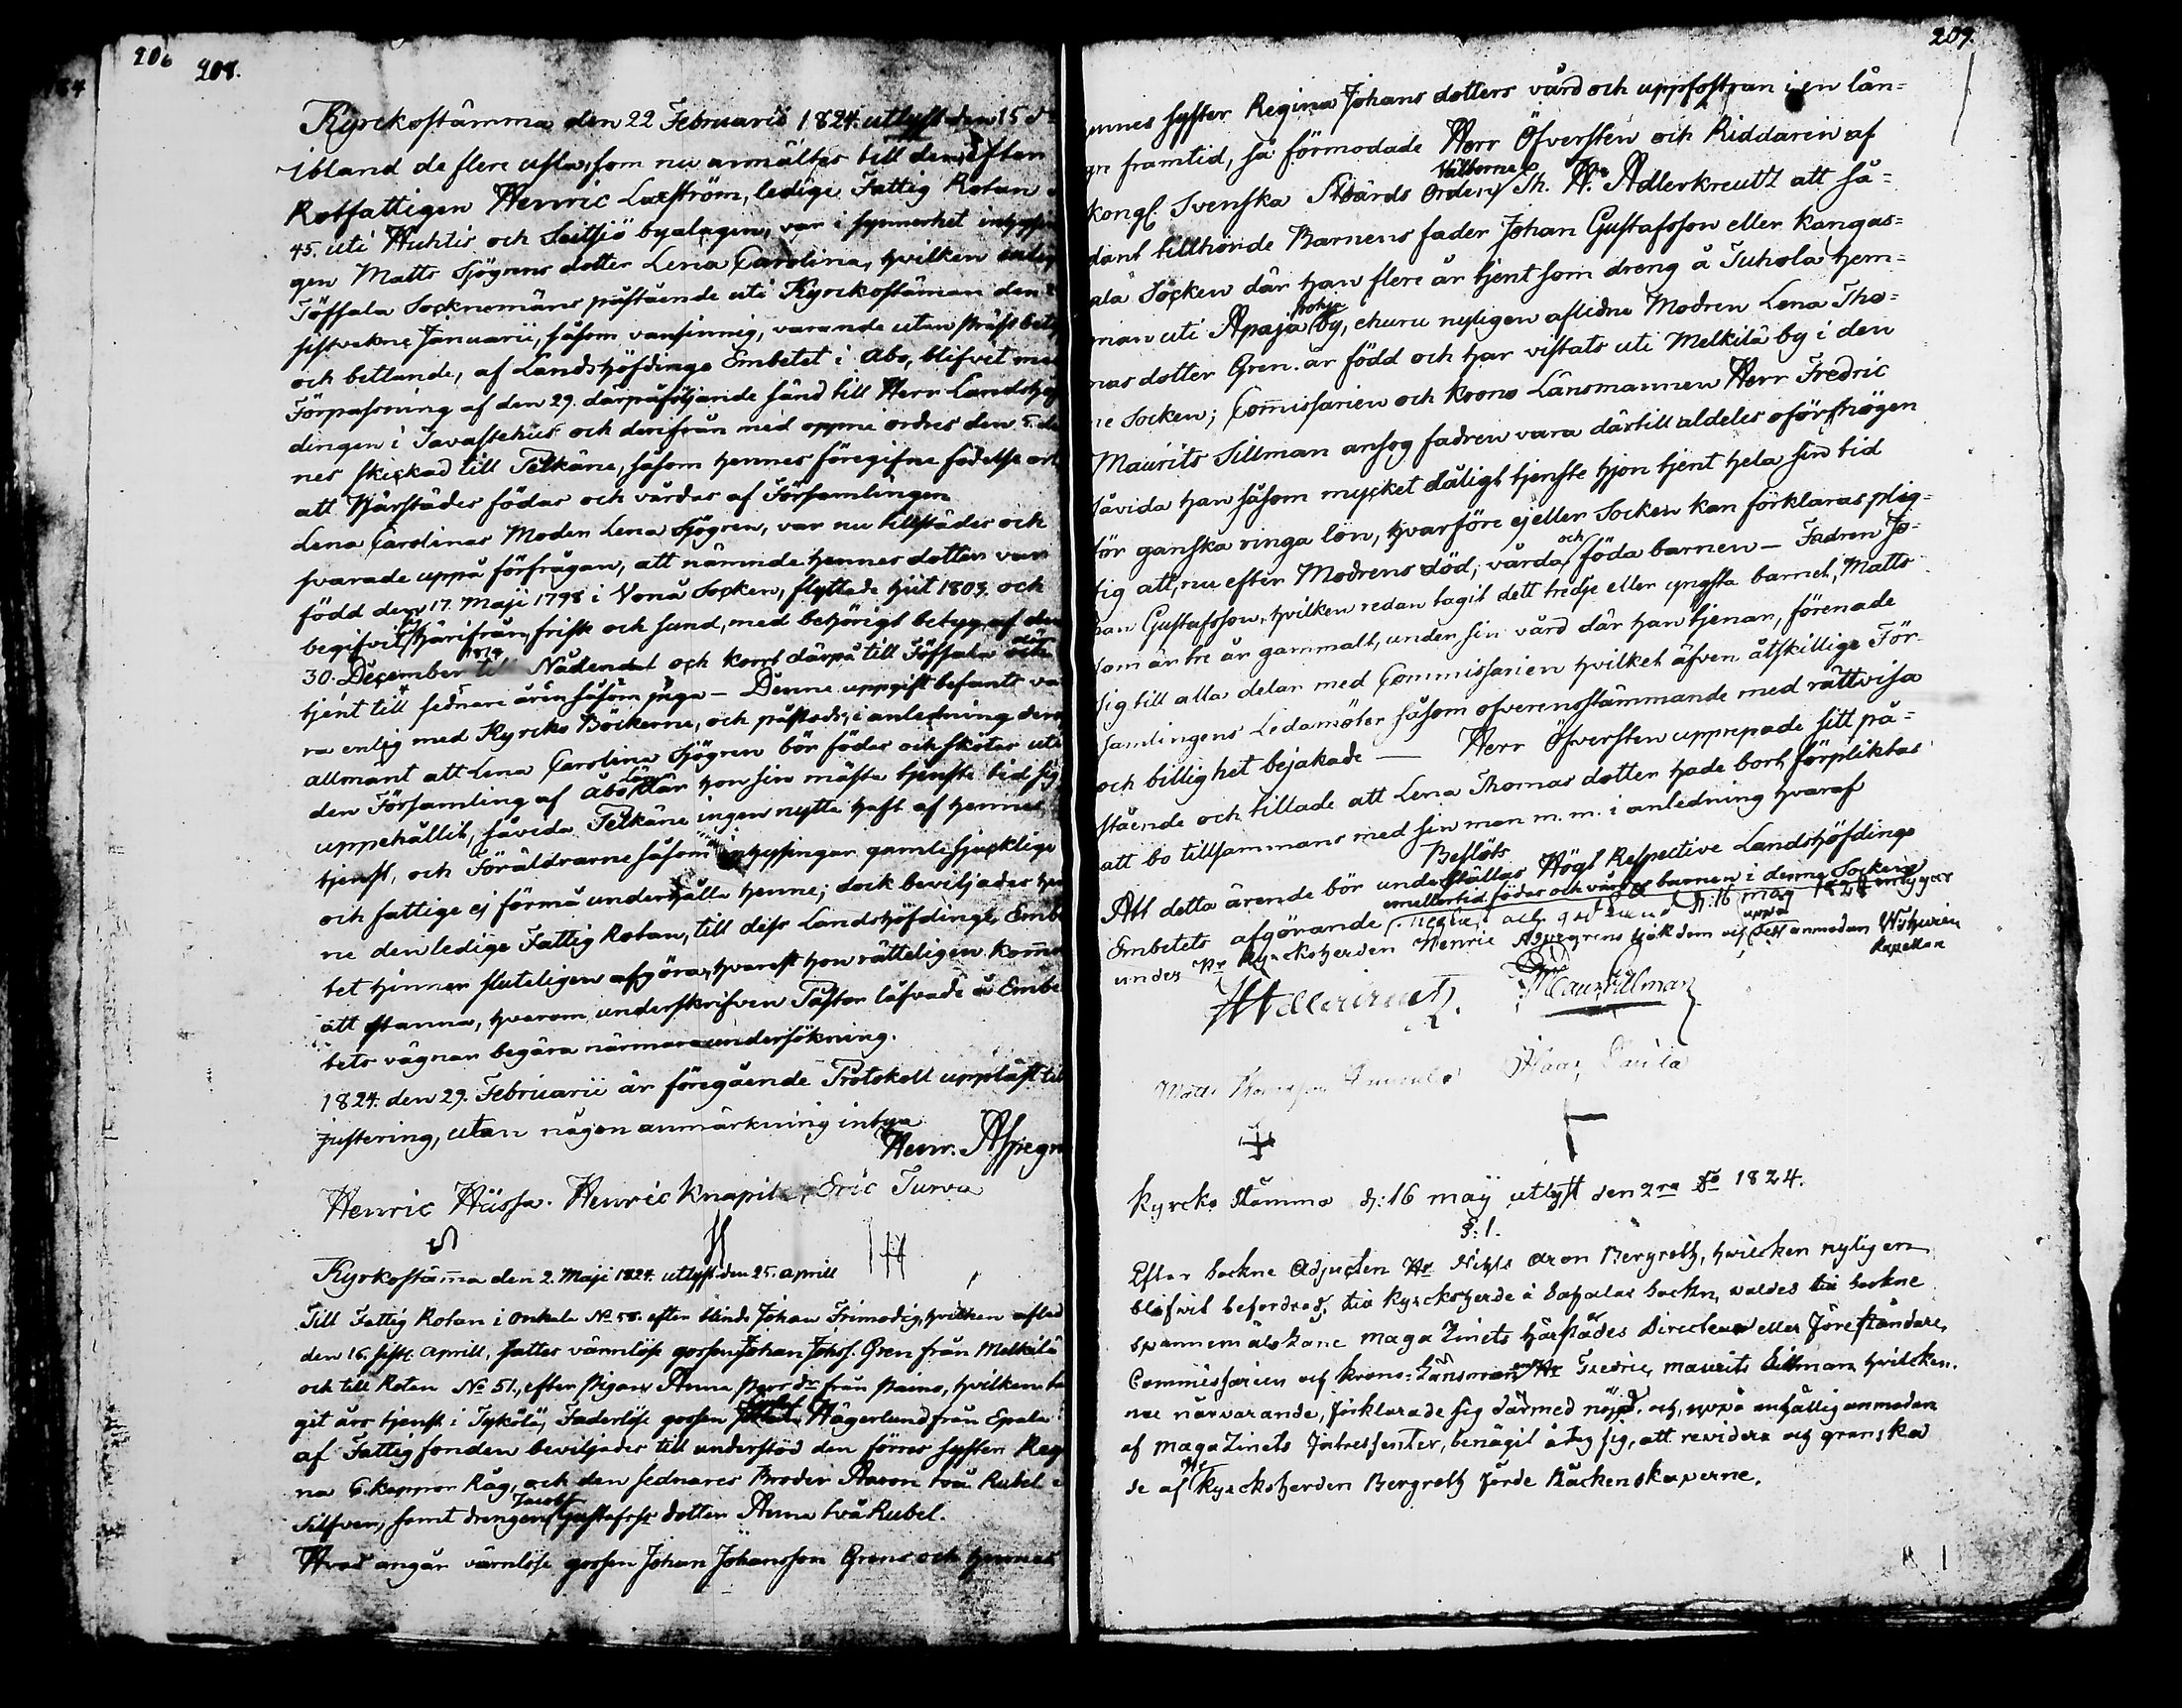 206
208.
Kyrckostämma den 22 Februarii 1824. utlyst den 15 d:o
Ibland de flere usla, som nu anmältes till den, efter
Rotfattigen Henric Laxström, ledige Fattig Rotan
45. uti Huhtis och Seitsiö byalagen, var i synnerhet inhyses
gen Matts Sjögrens dotter Lena Carolina, hvilken enlig
Töfsala Socknemäns påstående uti Kyrckostäman den
sistvekne Januarii, såsom vansinnig, varande utan prästbetyg
och bettlande, af Landshöfdinge Embetet i Abo, blifvet med
Förpassning af den 29. därpåföljande sänd till Herr Landshöf
dingen i Tavastehus och derifrån med oppne ordres den 5. den
nes skickad till Pelkäne, såsom hennes föregifne födelse ort
att härstädes födas och vårdas af Församlingen
Lena Carolinas Moder Lena Sjögren, var nu tillstädes och
svarade uppå förfrågan, att nämnde hennes dotter var
född den 17. Maji 1798 i Vonå Socken, flyttade hit 1803. och
begifvit sig härifrån, frisk och sund, med behörigt betyg af den
30. December 1819 till Nådendal och kort därpå till Töfsala där
tjent till sednare åren såsom piga — Denne uppgift befants va
ra enlig med Kyrcko Böckerne, och påstods, i anledning deraf
allmänt att Lena Carolina Sjögren bör födas och skötas uti
den Församling af Åbo Län där hon sin mästa tjenste tid sig
uppehållit, såvida Pelkäne ingen nytta haft af hennes
tjenst, och Föräldrarne såsom inhysingar gamle sjucklige
och fattige ej förmå underhålla henne; dock beviljades hen
ne den ledige Fattig Rotan, till dess Landshöfdinge Embe
tet hinner sluteligen afgöra, hvarest hon rätteligen kommer
att stanna, hvarom underskrifven Pastor låfvade å Embe
tets vägnar begära närmare undersökning.
1824. den 29. Februarii är föregående Protokoll uppläst till
justering, utan någon anmärkning intyga
Henr. Aspegren
Henric Hässa. Henric Knapila, Eric Turva
Kyrkostäm̄a den 2. Maji 1824. utlyst den 25. Aprill
Till Fattig Rotan i Onkala No 58. efter blinde Johan Frimodig, hvilken aflad
den 16. sistl. Aprill, sattes värnlöse gossen Johan Johss. Gren från Melkilä
och till Rotan No 51, efter Pigan Anna Pers dr från Paino, hvilken ta
git års tjenst i Tykölä, Faderlöse gossen Hägerlund från Epala
af Fattig fonden beviljades till understöd den förres syster Regi
na 6. kappor Råg, och den sednares Broder Aaron två Rubel i
Silfver, samt drengen Jacob Gustafss. dotter Anna två Rubel.
Hvad angår värnlöse gossen Johan Johansson Grens och hennes
209.
ennes syster Regina Johans dotters vård och uppfostran i en län=
gre framtid, så förmodade Herr Öfversten och Riddaren af
Kongl. Svenska Svärds Orden Välborne Th. A. Adlerkreutz att så=
dant tillhörde Barnens fader Johan Gustafsson eller Kangas=
ala Socken där han flere år tjent som dreng å Juhola hem=
man uti Apaja Pohja by, churu nyligen aflidne Modren Lena Tho=
mas dotter Gren är född och har vistats uti Melkilä by i den
ne Socken; Com̄issarien och Krono Länsmannen Herr Fredric
Maurits Sillman ansog fadren vara därtill aldeles oförmögen
såvida han såsom mycket dåligt tjenste hjon tjent hela sin tid
för ganska ringa lön, hvarföre ej eller Socken kan förklaras plig=
tig att, nu efter Modrens död, vårda och föda barnen — Fadren Jo=
han Gustafsson, hvilken redan tagit dett tredje eller yngsta barnet, Matts
som är tre år gammalt, under sin vård där han tjenar, förenade
sig till alla delar med Commissarien hvilket äfven åtskillige För=
samlingens Ledamöter såsom öfverensstämmande med rättvisa
och billighet bejakade — Herr Öfversten upprepade sitt på=
stående och tillade att Lena Thomas dotter hade bort förpliktas
att bo tillsammans med sin man m. m. i anledning hvaraf
Beslöts
Att detta ärende bör underställas Högl Respective Landshöfdinge
Embetets afgörande emellertid födas och vårdas barnen i denne Socken
d: 16 maij 1824 intygar
under Hr Kyrckoherden Henric Aspegrens sjukdom och uppå dess anmodan
Kapellan
Maur. Sillman
Matts Thomasson
Kyrcko Stämma d: 16 maÿ utlyst den 2ra do 1824.
§: 1.
Efter Sockne Adjucten Hr Nils Aron Bergroth, hvilcken nyligen
blifvit befordrad, till Kyrckoherde i Sahalax Sockn, valdes till Sockne
Spannemåls Lane Magazinets härstädes Directeur eller Föreståndare,
Commissarien och Krono=Länsmannen Hr Fredric Maurits Sillman hvilcken
nu närvarande, förklarade sig därmed nöjd, och, uppå enhällig anmodan
af Magazinets Intressenter, benägit åtog sig, att revidera och granska
de af Hr Kyrckoherden Bergroth förde Räckenskaperne.